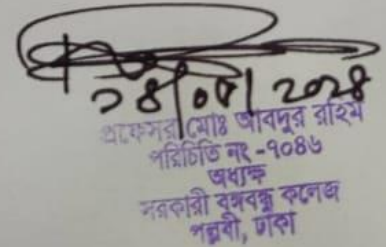 প্রফেসর মোঃ আবদুর রহিম
পরিচিতি নং -৭০৪৬
অধ্যক্ষ
সরকারী বঙ্গবন্ধু কলেজ
পল্লবী, ঢাকা